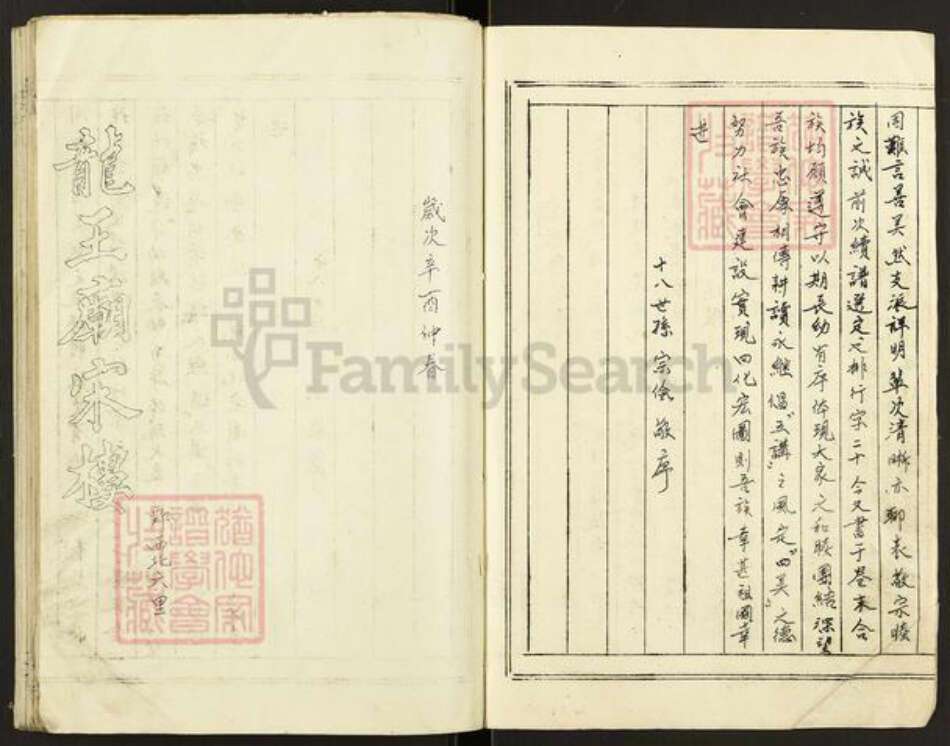 固難言善美然支派詳明輩次清晰亦聊表敬宗睦
族之誠前次續譜選定之排行字二十今又書于卷末合
族均願遵守以期長幼有序体現大家之和睦團結深望
吾族忠厚相傳耕讀永繼倡“五講”之風定“四美”之德
努力社會建設實現四化宏圖則吾族幸甚祖國幸
甚
十八世孫 宗俭 敬序
歲次辛酉仲春
龍王廟宋樓
西北六里
FamilySearch